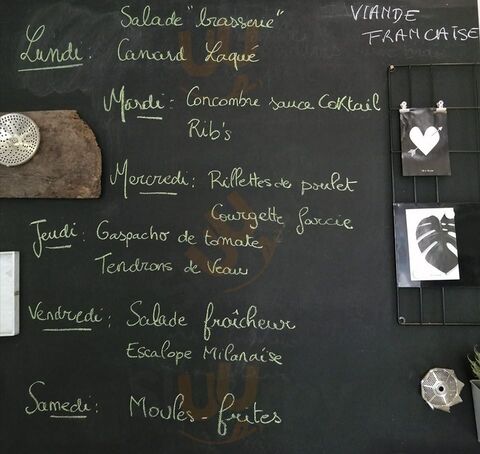 Salade "brasserie"
VIANDE
FRANCAISE
Lundi : Canard Laqué
Mardi : Concombre sauce Coktail
Rib's
Mercredi : Rillettes de poulet
Courgette farcie
Jeudi : Gaspacho de tomate
Tendrons de Veau
Vendredi : Salade fraîcheur
Escalope Milanaise
Samedi : Moules-frites